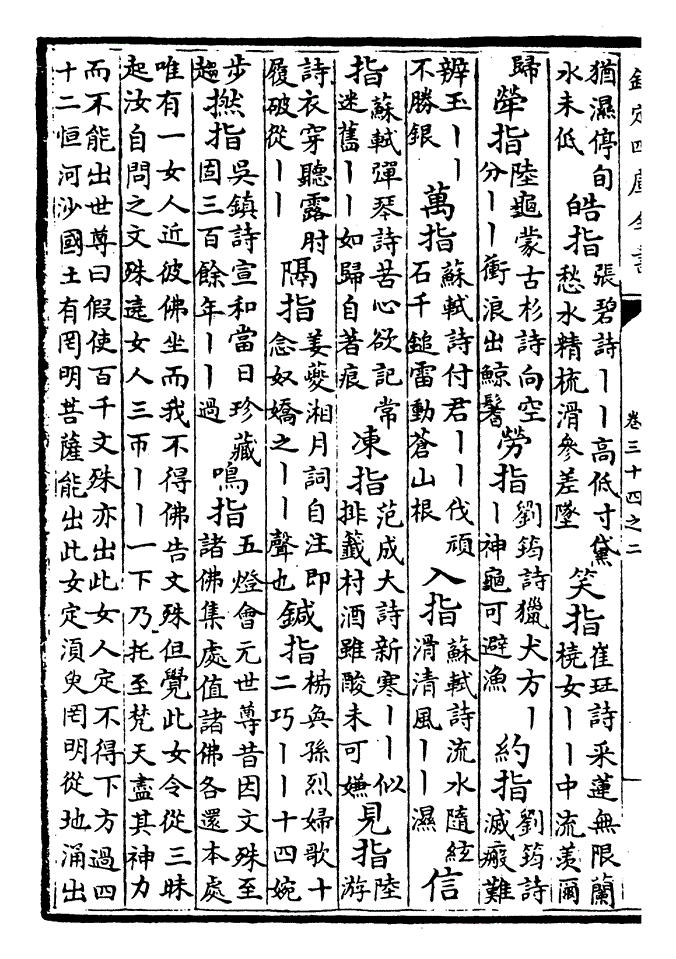 欽定四庫全書
卷三十四之二
猶濕停旬水未低 皓指 張碧詩丨丨高低寸黛愁水精梳滑參差墜 笑指 崔珏詩采蓮無限蘭橈女丨丨中流羡爾
歸 犖指 陸龜蒙古杉詩向空分丨丨衝浪出鯨鬐 勞指 劉筠詩獵犬方丨丨神龜可避漁 約指 劉筠詩滅瘢難
辨玉丨丨不勝銀 萬指 蘇軾詩付君丨丨伐頑石千鎚雷動蒼山根 入指 蘇軾詩流水隨絃滑清風丨丨濕 信
指 蘇軾彈琴詩苦心欲記常迷舊丨丨如歸自著痕 凍指 范成大詩新寒丨丨似排籤村酒雖酸未可嫌 見指 陸游
詩衣穿聽露肘履破從丨丨 隔指 姜夔湘月詞自注即念奴嬌之丨丨聲也 鍼指 楊奐孫烈婦歌十二巧丨丨十四婉
步趨 撚指 吳鎮詩宣和當日珍藏固三百餘年丨丨過 鳴指 五燈會元世尊昔因文殊至諸佛集處值諸佛各還本處
唯有一女人近彼佛坐而我不得佛告文殊但覺此女令從三昧
起汝自問之文殊遶女人三帀丨丨一下乃托至梵天盡其神力
而不能出世尊曰假使百千文殊亦出此女人定不得下方過四
十二恒河沙國土有罔明菩薩能出此女定須臾罔明從地涌出